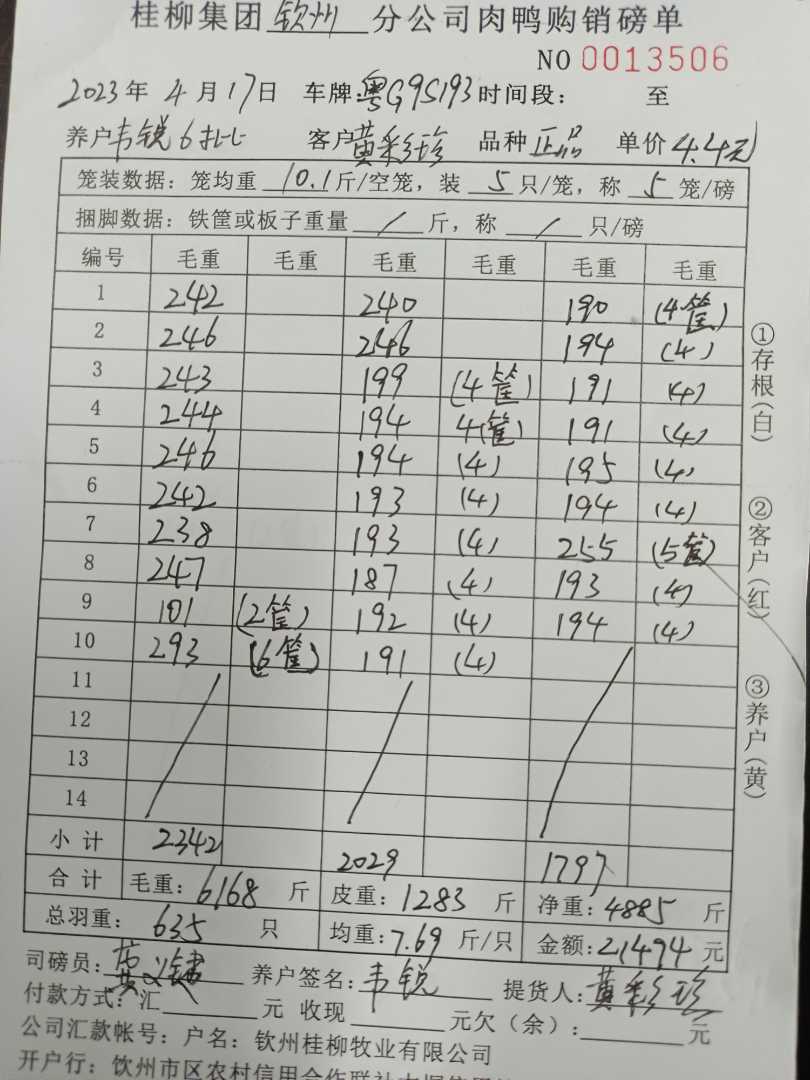 桂柳集团 钦州 分公司肉鸭购销磅单
NO 0013506
2023年 4月 17日 车牌:粤G9S193 时间段: 至
养户 韦锐6批 客户 黄彩珍 品种 正品 单价 4.4元
笼装数据: 笼均重 10.1 斤/空笼, 装 5 只/笼, 称 5 笼/磅
捆脚数据: 铁筐或板子重量 / 斤, 称 / 只/磅
编号 毛重 毛重 毛重 毛重 毛重 毛重
1 242 240 190 (4筐)
2 246 246 194 (4)
3 243 199 (4筐) 191 (4)
4 244 194 4(筐) 191 (4)
5 246 194 (4) 195 (4)
6 242 193 (4) 194 (4)
7 238 193 (4) 255 (5筐)
8 247 187 (4) 193 (4)
9 101 (2筐) 192 (4) 194 (4)
10 293 (6筐) 191 (4)
11
12
13
14
小计 2342 2029 1797
合计 毛重: 6168 斤 皮重: 1283 斤 净重: 4885 斤
总羽重: 635 只 均重: 7.69 斤/只 金额: 21494 元
司磅员: 黄 养户签名: 韦锐 提货人: 黄彩珍
付款方式: 汇 元 收现 元欠(余): 元
公司汇款帐号: 户名: 钦州桂柳牧业有限公司
开户行: 钦州市区农村信用合作联社
①存根(白)
②客户(红)
③养户(黄)